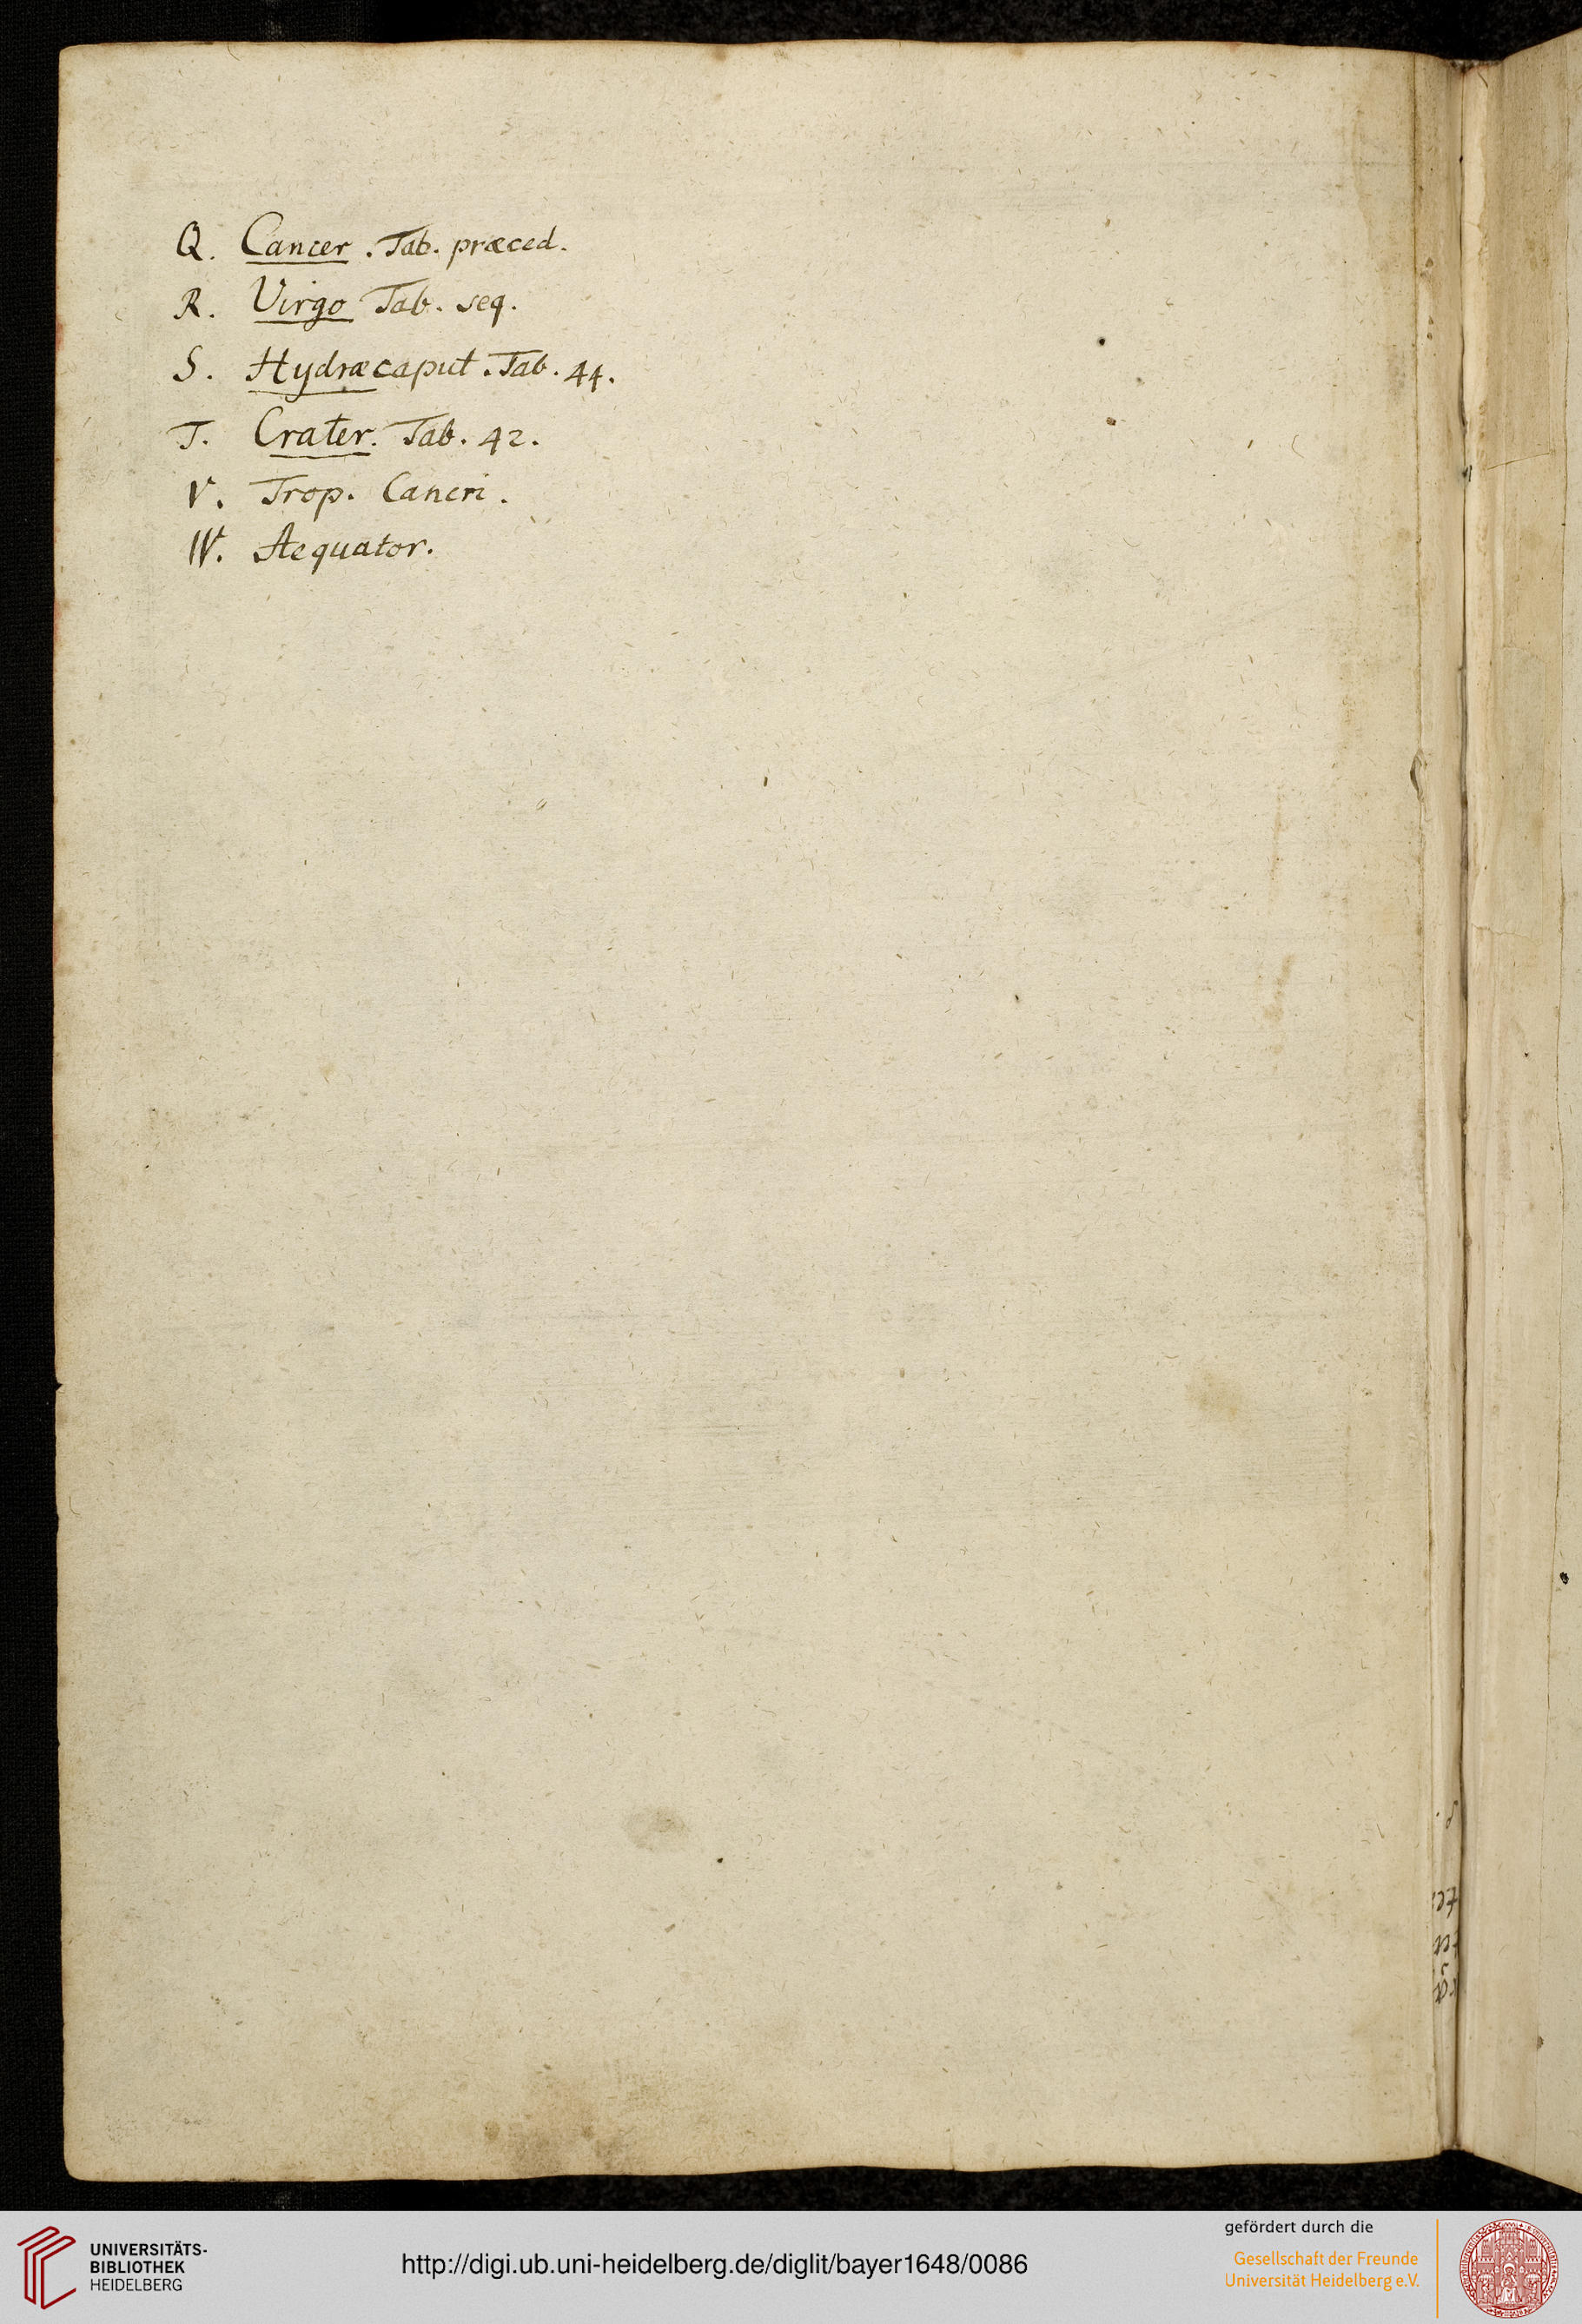 Q. Cancer . Tab. præced.
R. Virgo Tab. seq.
S. Hydræ caput . Tab. 44.
T. Crater. Tab. 42.
V. Trop. Cancri.
W. Aequator.
UNIVERSITÄTS-
BIBLIOTHEK
HEIDELBERG
http://digi.ub.uni-heidelberg.de/diglit/bayer1648/0086
gefördert durch die
Gesellschaft der Freunde
Universität Heidelberg e.V.